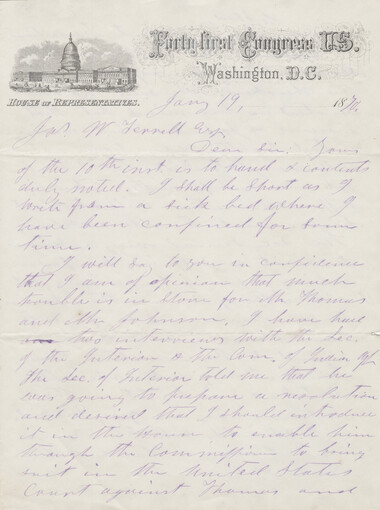 Forty-first Congress U.S.
Washington, D.C.
House of Representatives.
Jany 19, 1870.
Jas. W Terrell Esq
Dear Sir. Yours
of the 10th inst is to hand & contents
duly noted. I shall be short as I
write from a sick bed where I
have been confined for some
time.
I will say to you in confidence
that I am of opinion that much
trouble is in store for Mr Thomas
and Johnson. I have had
two interviews with the Sec.
of the Interior & the Com. of Indian Aff
The Sec. of Interior told me that he
was going to prepare a resolution
and desired that I should introduce
it in the House to enable him
through the Commission to bring
suit in the United States
Court against Thomas and